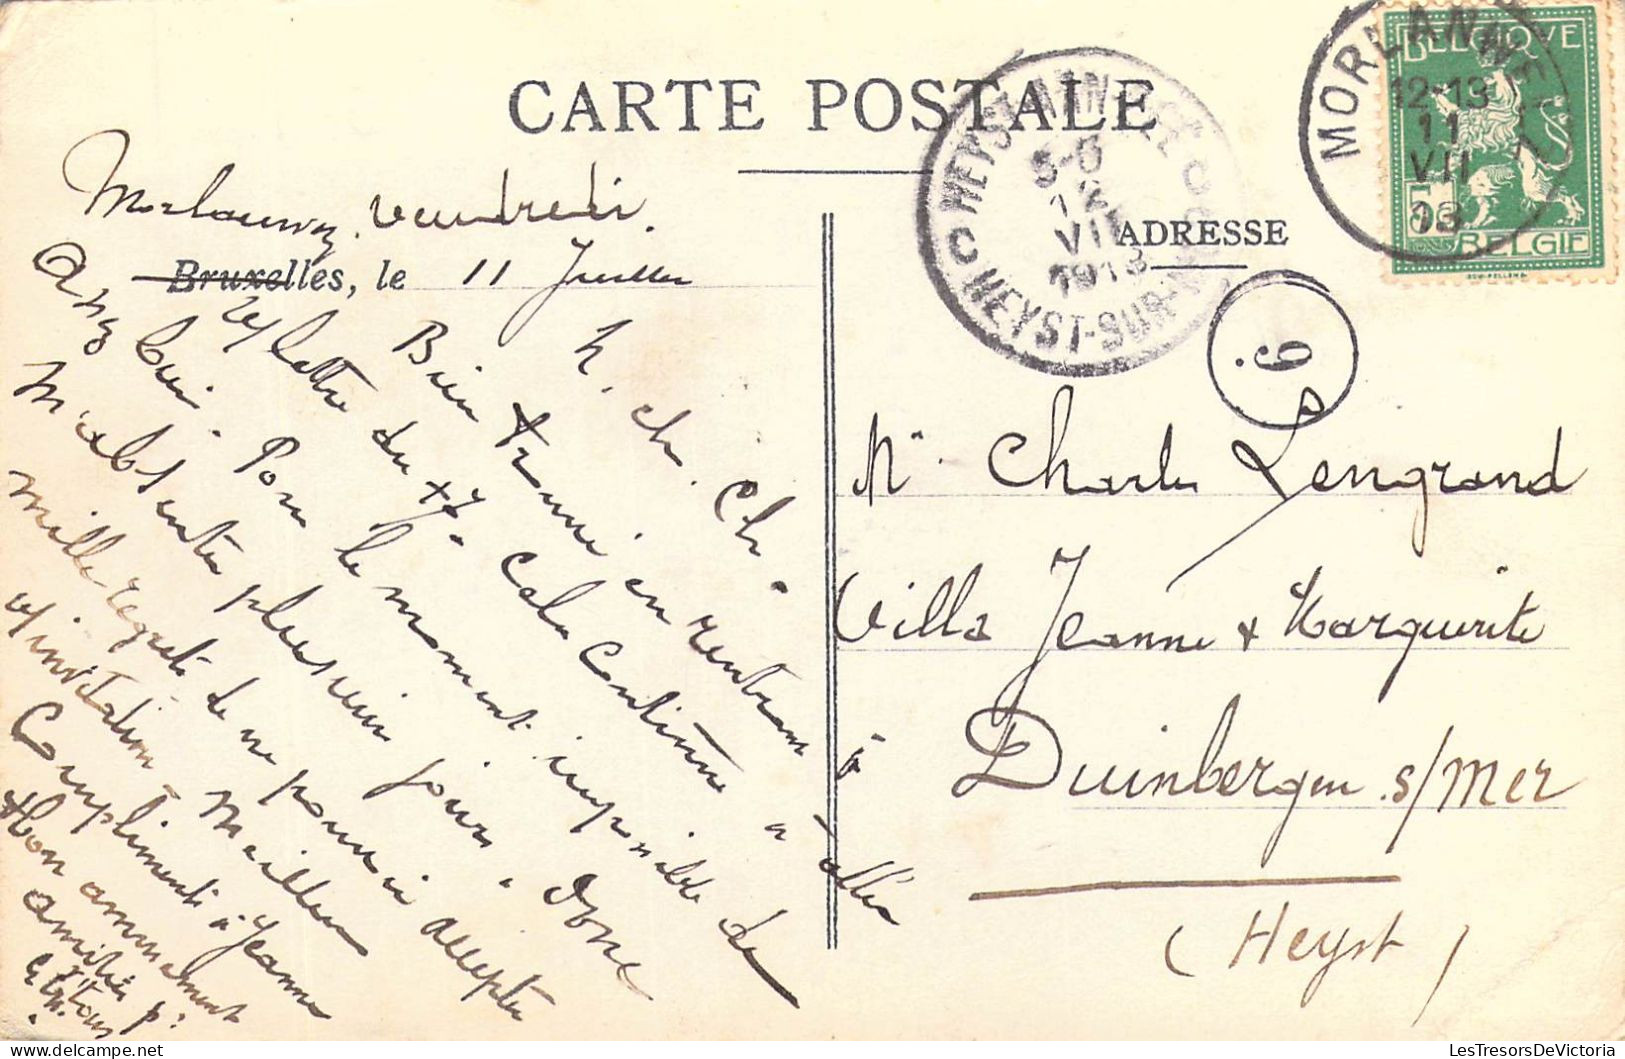 CARTE POSTALE
Morlanwez. vendredi.
Bruxelles, le 11 Juillet
M. ch. Ch.
Bien trouvé en rentrant
v/ lettre du + 7. Cela continue à aller
assez bien. Pour le moment impossible de
m'absenter plusieurs jours. Donc
mille regrets de ne pouvoir accepter
v/ invitation. Meilleurs
Compliments à Jeanne
+ bon amusement
amitiés
p. vs tous
HEYST
5-6
12
VII
1913
HEYST-SUR-MER
MORLANWELZ
12-13
11
VII
13
BELGIQUE
5
BELGIË
ADRESSE
6
Mr. Charles Lengrand
Villa Jeanne + Marguerite
à Duinbergen s/ Mer
(Heyst)
LesTresorsDeVictoria